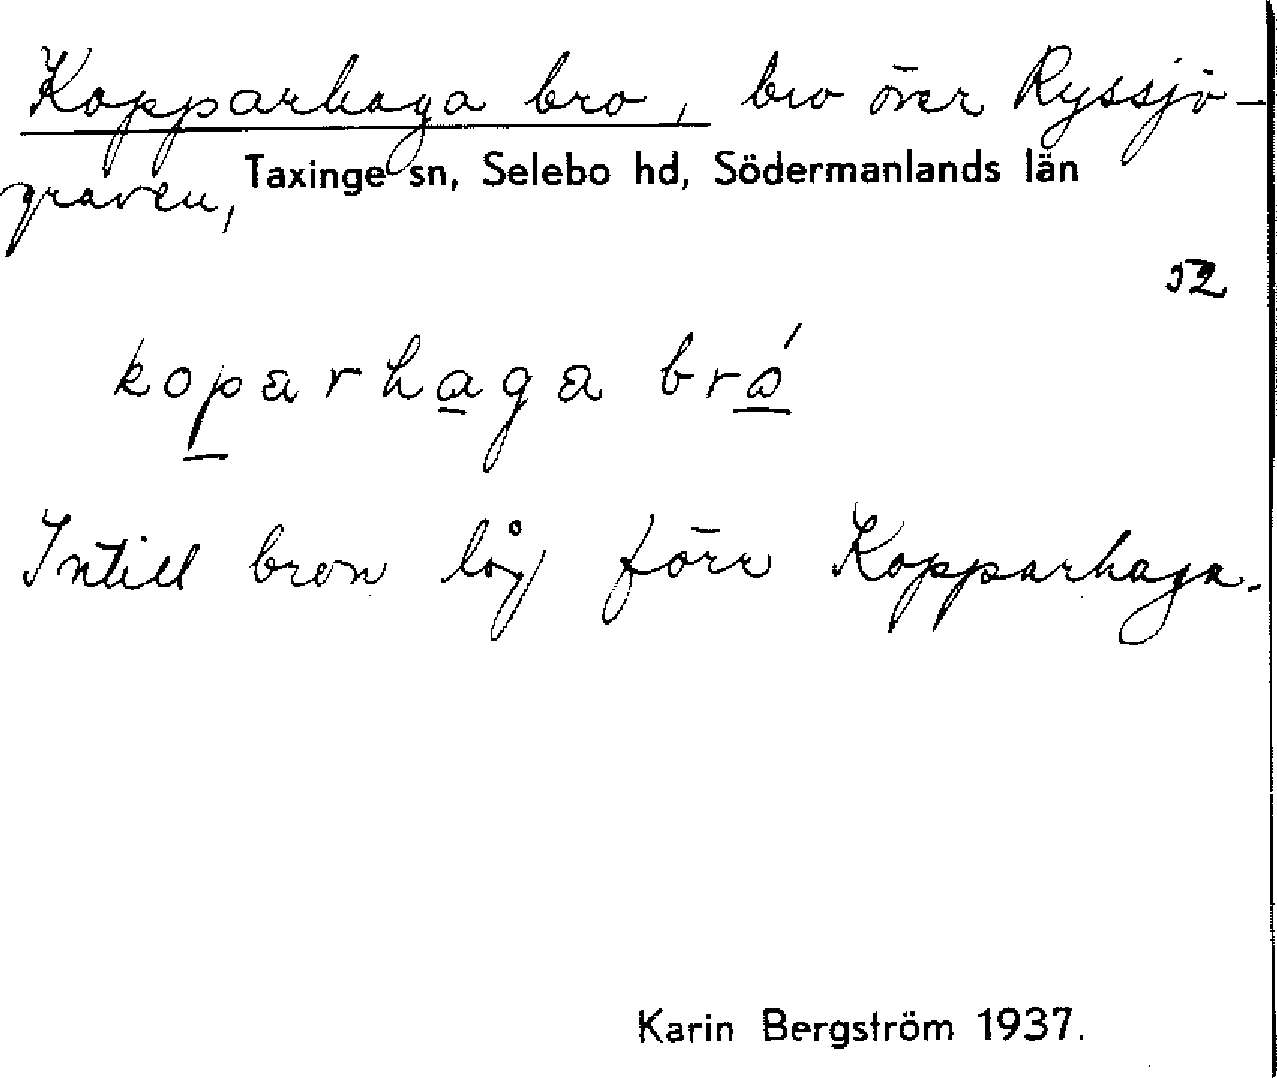 Kopparhaga bro, bro över Ryssjö-
Taxinge sn, Selebo hd, Södermanlands län
graven,
52
koparhaga bró
Intill bron låg förr Kopparhaga.
Karin Bergström 1937.